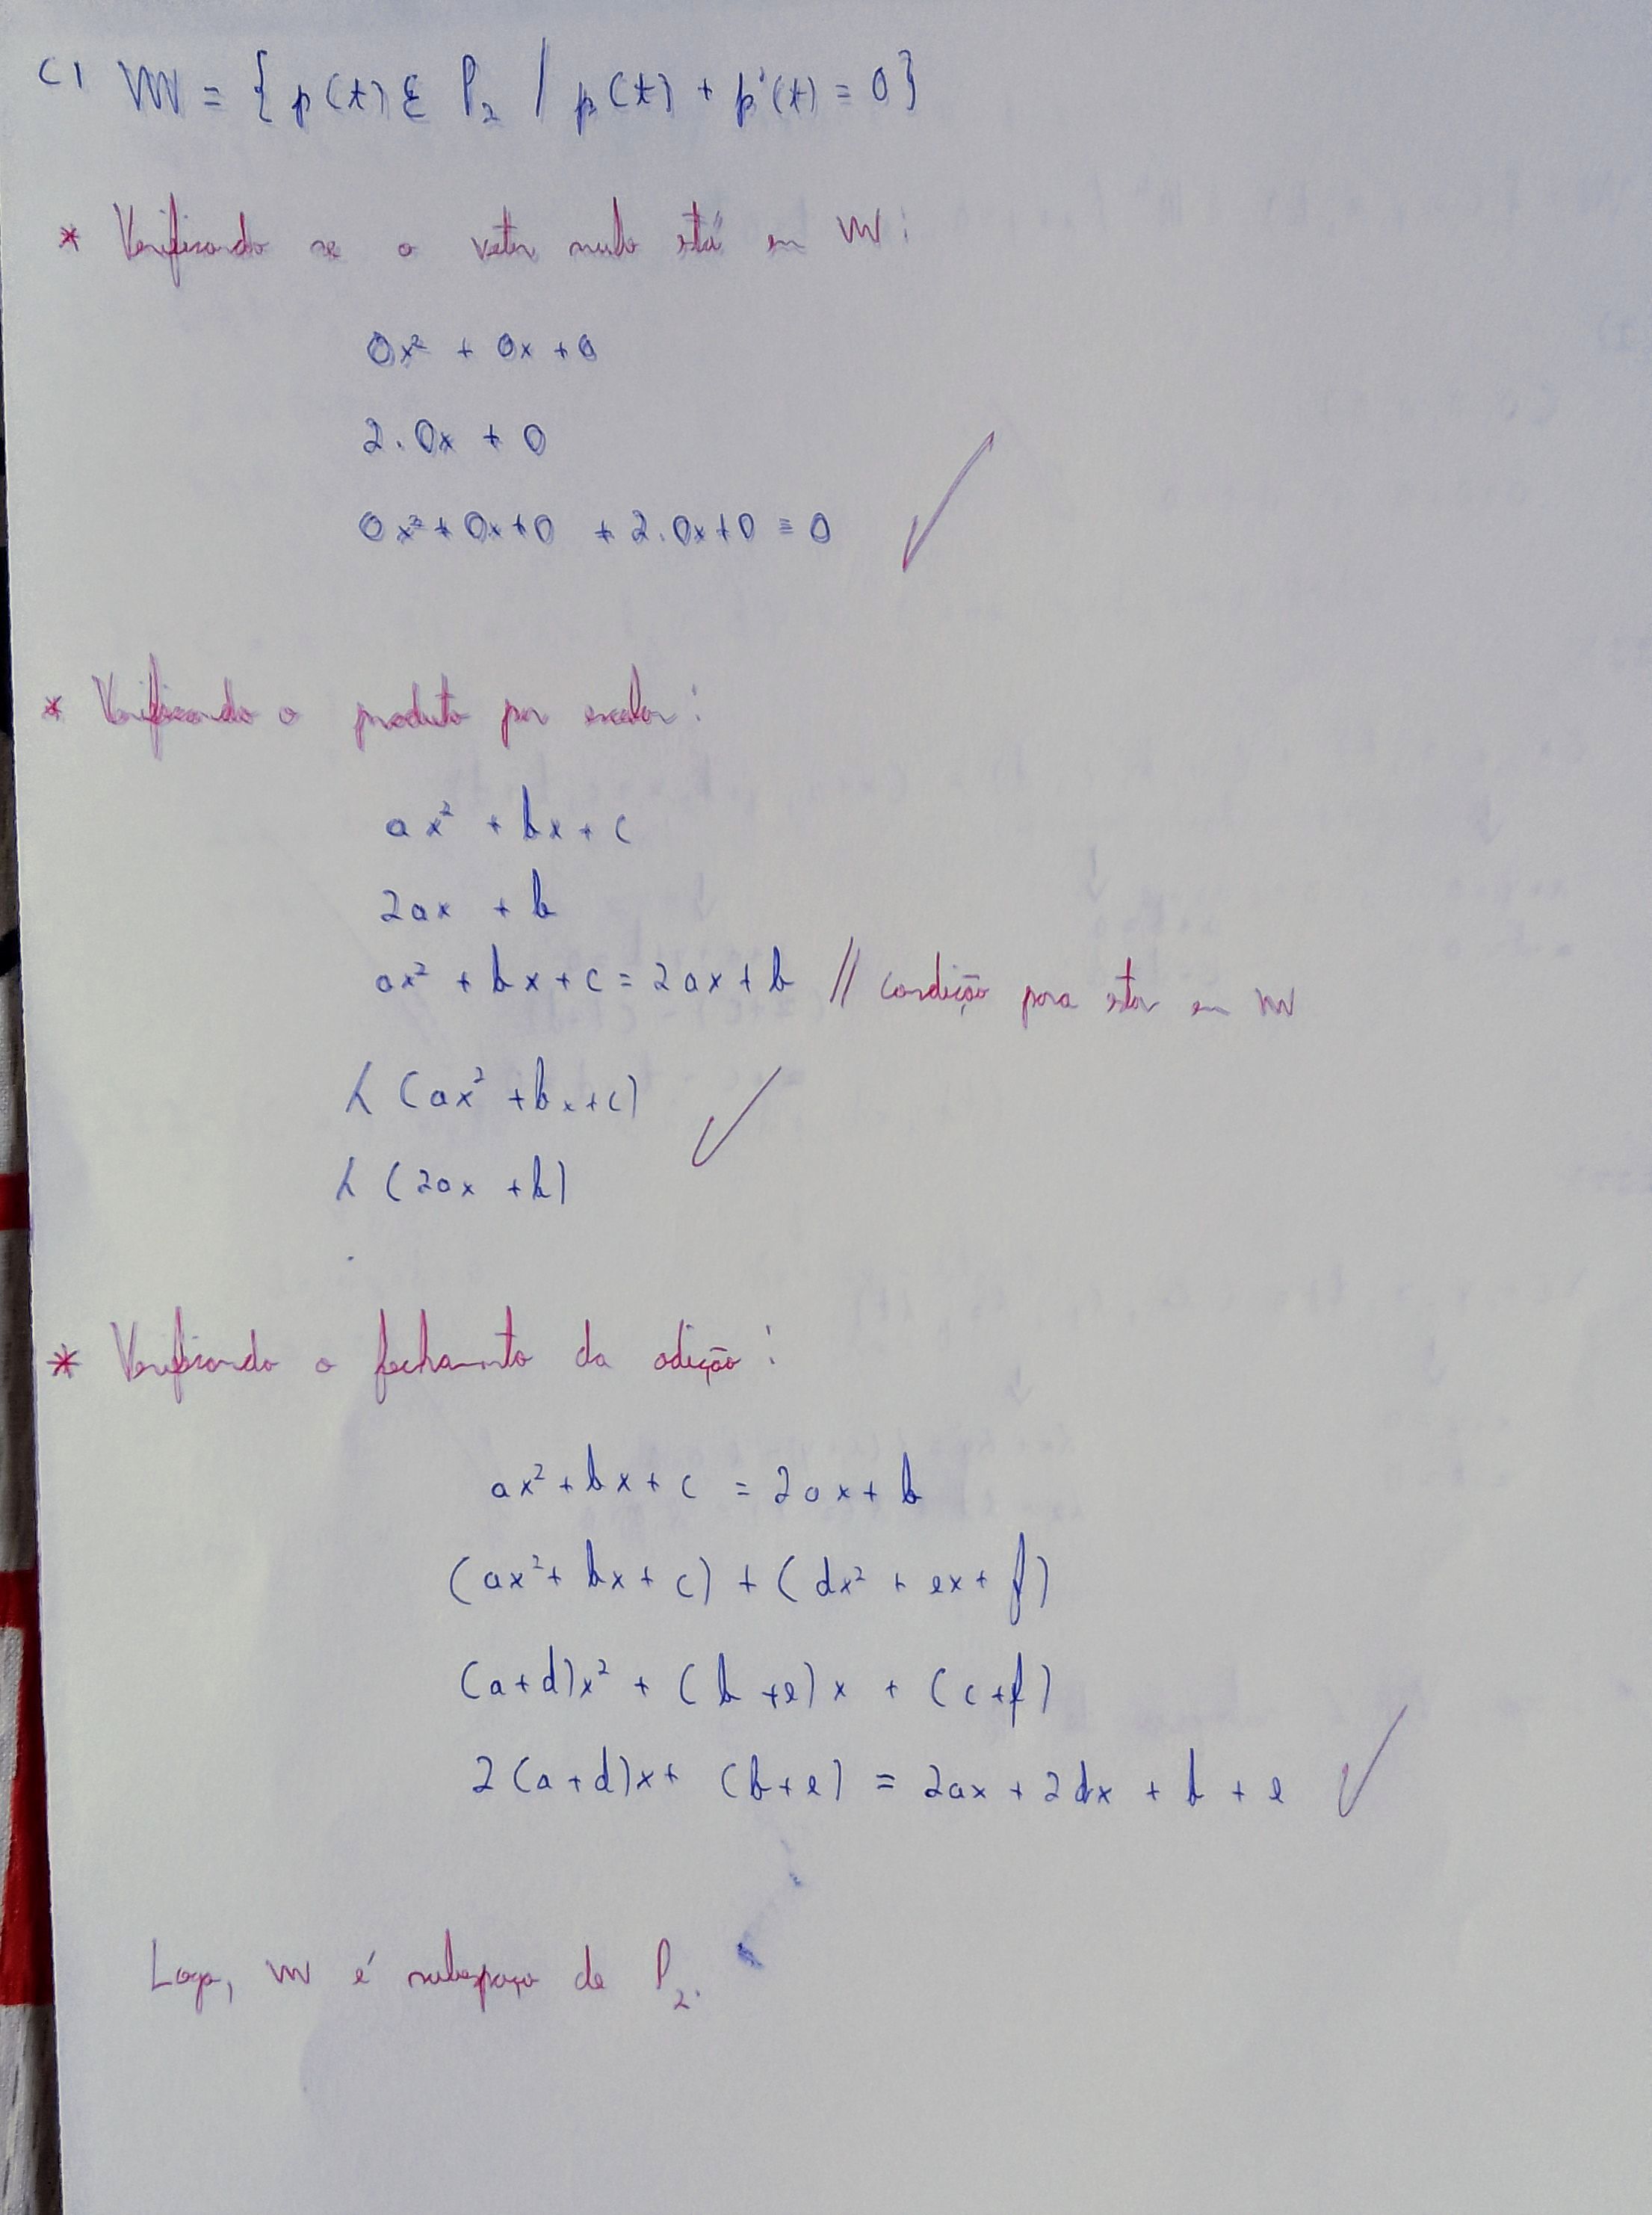 C) W = { p(t) ∈ P₂ / p(t) + p'(t) = 0}
* Verificando se o vetor nulo está em W:
0x² + 0x + 0
2.0x + 0
0x² + 0x + 0 + 2.0x + 0 = 0 ✓
* Verificando o produto por escalar:
ax² + bx + c
2ax + b
ax² + bx + c = 2ax + b // condição para estar em W
λ (ax² + bx + c) ✓
λ (2ax + b)
* Verificando o fechamento da adição:
ax² + bx + c = 2ax + b
(ax² + bx + c) + (dx² + ex + f)
(a+d)x² + (b+e)x + (c+f)
2(a+d)x + (b+e) = 2ax + 2dx + b + e ✓
Logo, W é subespaço de P₂.